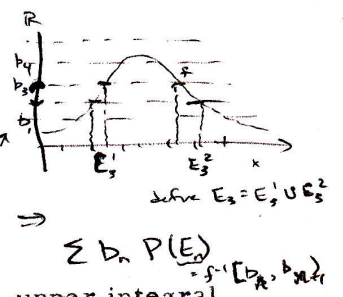 ℝ
b₄
b₃
f
b₁
E₃¹ E₃² x
define E₃ = E₃¹ ∪ E₃²
⇒
Σ bₙ P(Eₙ)
= f⁻¹[bₙ, bₙ₊₁)
upper integral